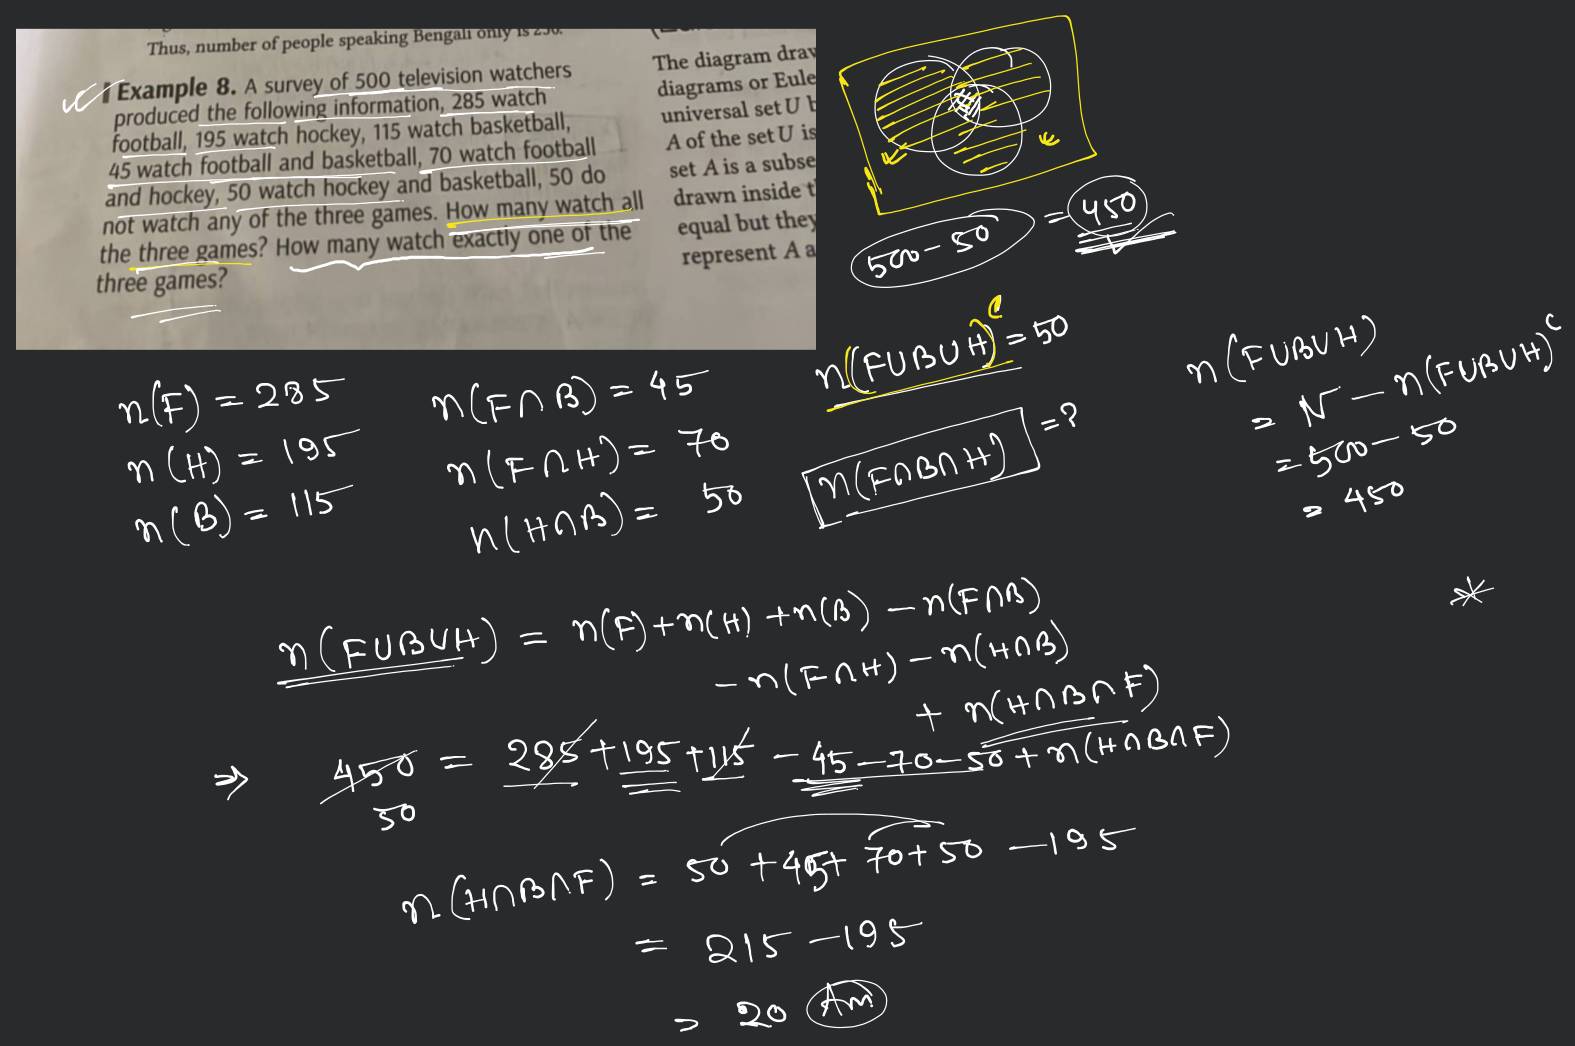 Thus, number of people speaking Bengali only is 250.
Example 8. A survey of 500 television watchers
produced the following information, 285 watch
football, 195 watch hockey, 115 watch basketball,
45 watch football and basketball, 70 watch football
and hockey, 50 watch hockey and basketball, 50 do
not watch any of the three games. How many watch all
the three games? How many watch exactly one of the
three games?
The diagram draw
diagrams or Eule
universal set U b
A of the set U is
set A is a subse
drawn inside t
equal but they
represent A a
500 - 50 = 450
n(F) = 285
n(H) = 195
n(B) = 115
n(F∩B) = 45
n(F∩H) = 70
n(H∩B) = 50
n(F∪B∪H)ᶜ = 50
n(F∩B∩H) = ?
n(F∪B∪H)
= N - n(F∪B∪H)ᶜ
= 500 - 50
= 450
*
n(F∪B∪H) = n(F) + n(H) + n(B) - n(F∩B)
- n(F∩H) - n(H∩B)
+ n(H∩B∩F)
⇒ 450 = 285 + 195 + 115 - 45 - 70 - 50 + n(H∩B∩F)
50
n(H∩B∩F) = 50 + 45 + 70 + 50 - 195
= 215 - 195
= 20 Ans